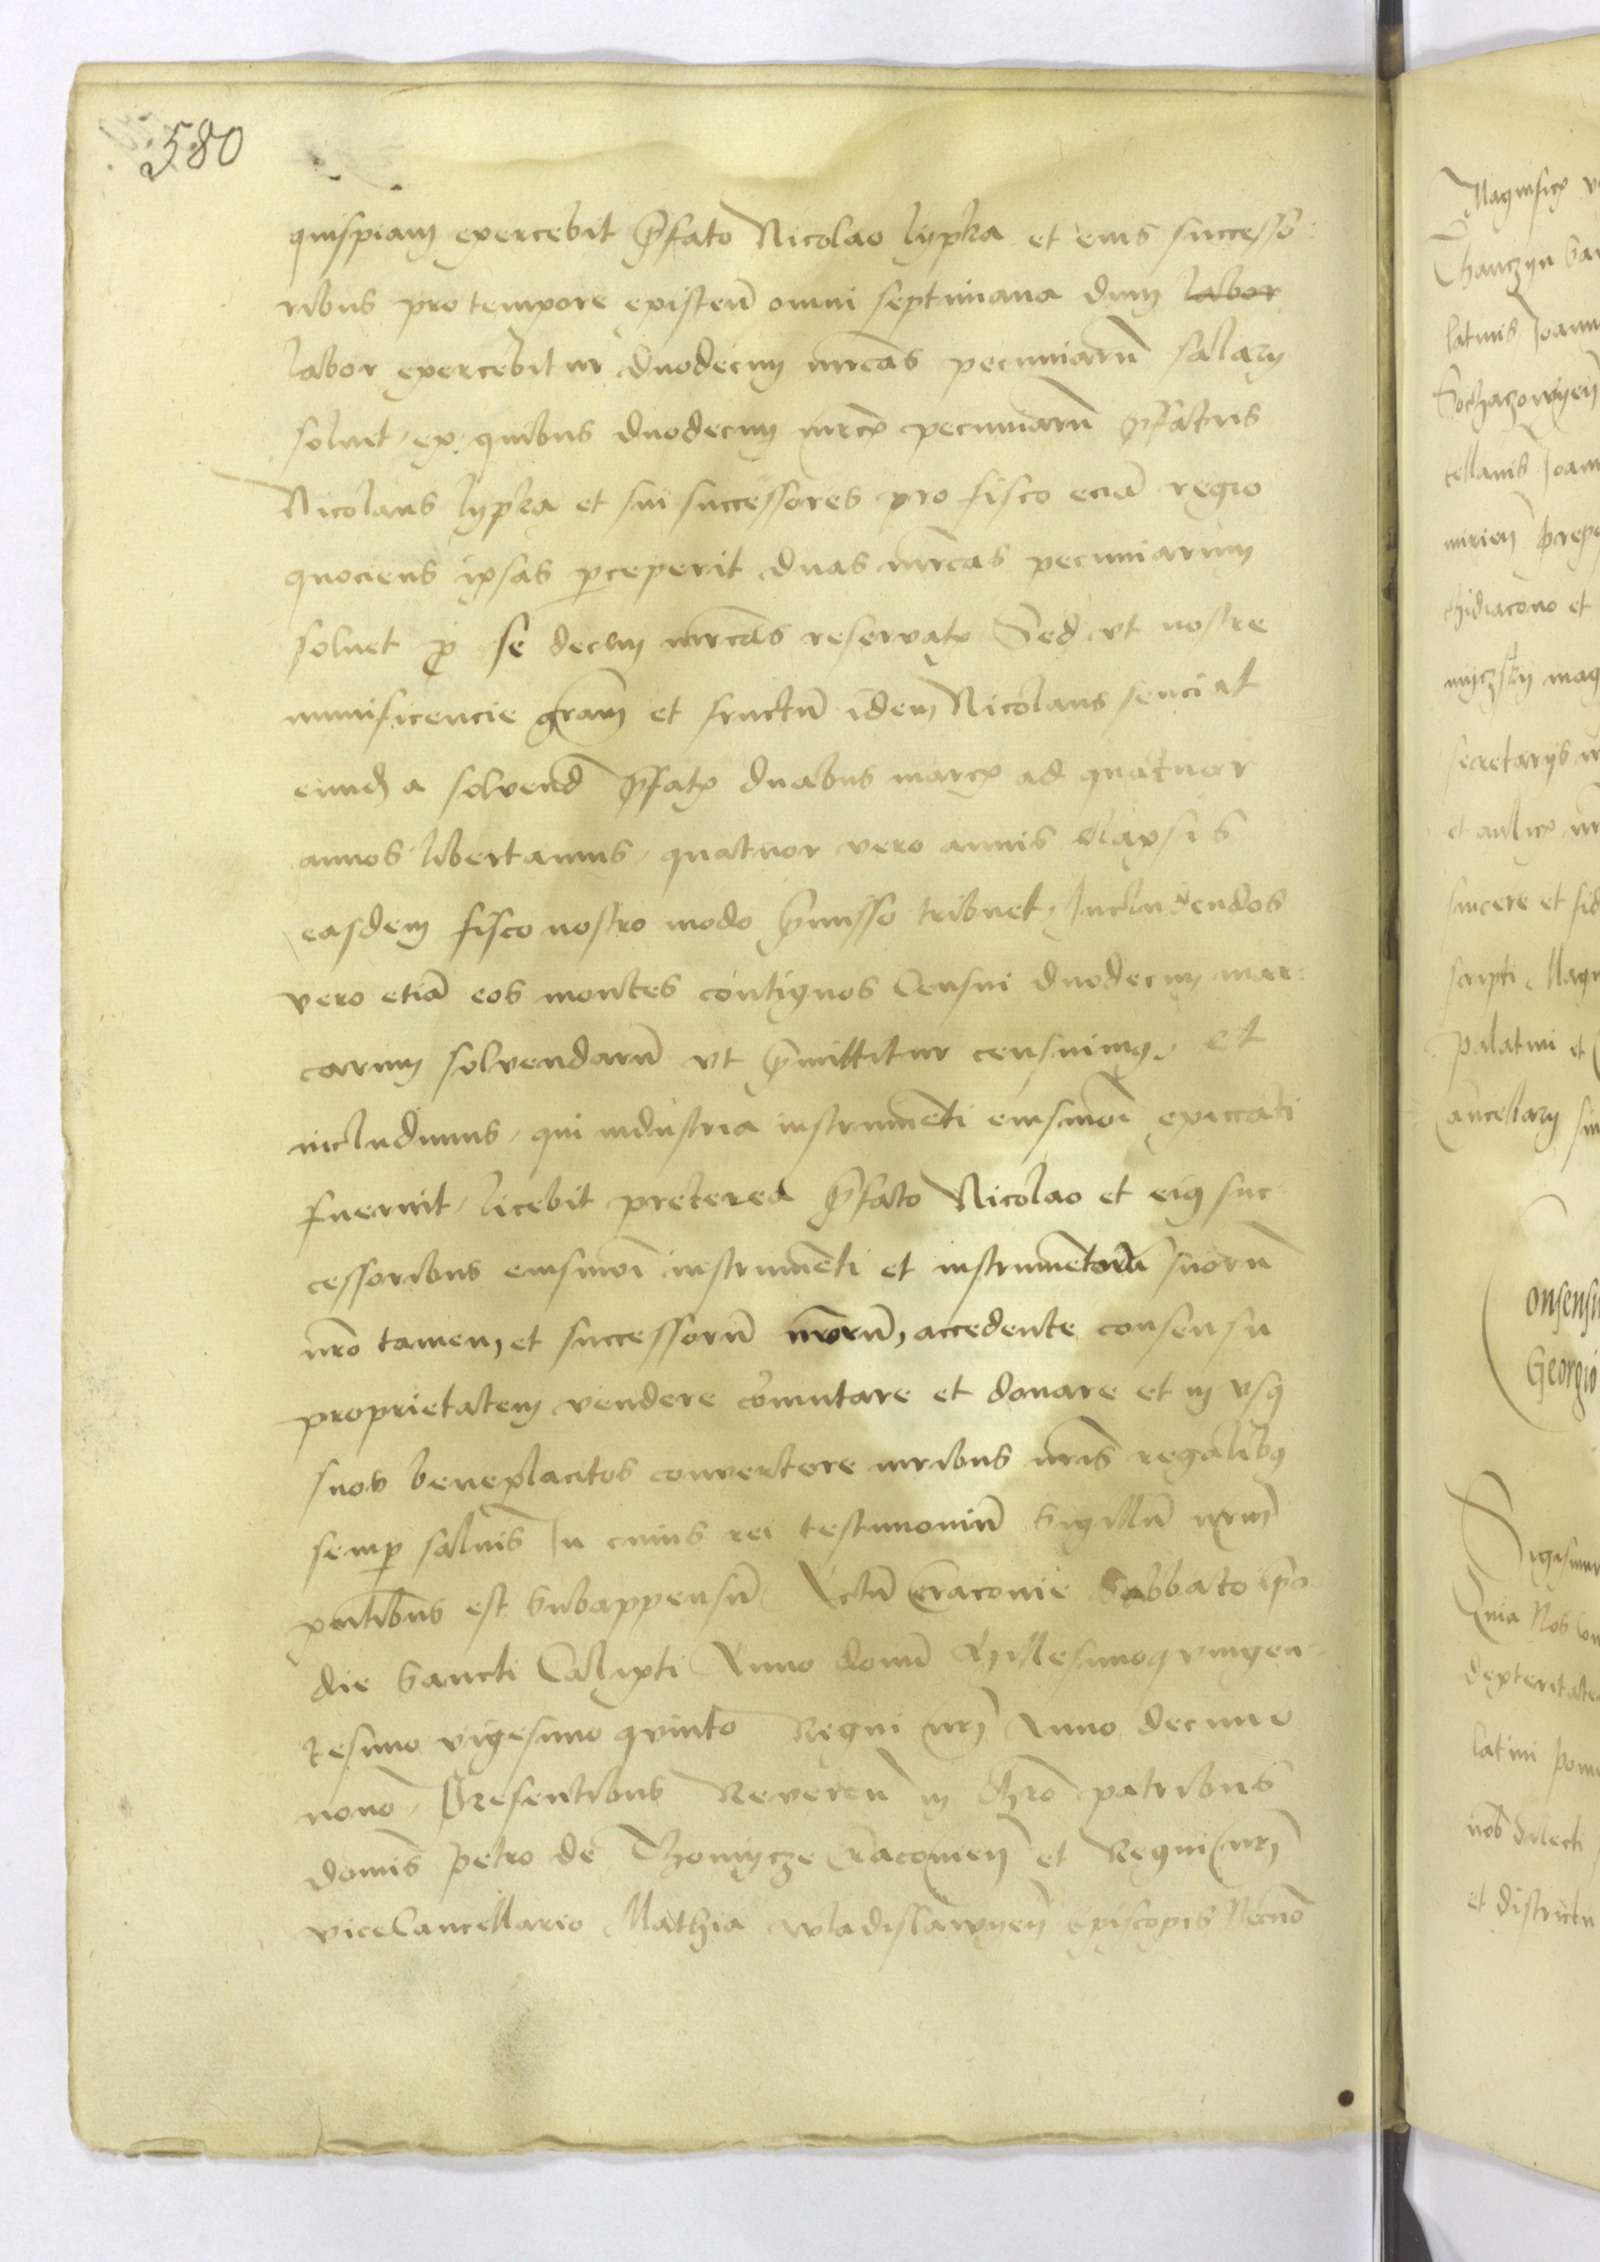 580
quispiam exercebit p̄fato Nicolao lypka et eius successo:
ribus pro tempore existen̄ omni septimana dum labor
labor exercebitur duodecim mrcas pecuniarū salarij
soluet, ex quibus duodecim mrcis pecuniarū p̄fatus
Nicolaus lypka et sui successores pro fisco eciā regio
quociens ipsas ꝑceperit duas mrcas pecuniarum
soluet ꝓ se decem mrcas reservatis Sed vt nostre
munificencie gr̄am et fructū idem Nicolaus senciat
eund̄ a solvend̄ p̄fatis duabus marcis ad quatuor
annos libertamus, quatuor vero annis elapsis
easdem fisco nostro modo p̄misso tribuet, Includendos
vero etiā eos montes contiguos Censui duodecim mar:
carum solvendarū vt p̄mittitur censuimꝰ, et
includimus, qui industria instrumēti eiusmoī exiccati
fuerint, licebit preterea p̄fato Nicolao et eiꝰ suc
cessoribus eiusmoī instrumēti et instrumētorū suorū
nr̄o tamen, et successorū nr̄orū, accedente consensu
proprietatem vendere cōmutare et donare et in vsꝰ
suos beneplacitos convertere iuribus nr̄is regalibꝰ
semꝑ saluis In cuius rei testimoniū Sigillū nr̄um
pn̄tibus est Subappensū Actū Cracovie Sabbato ip̄o
die Sancti Calixti Anno domī Millesimoqvingen
tesimo vigesimo qvinto Regni nr̄i Anno decimo
nono, Presentibus Reveren̄ in Chr̄o patribus
domīs Petro de Thomycze Cracovien̄ et Regni nr̄i
viceCancellario Mathia wladislawyen̄ Episcopis Necnō
Magnificis
Sochaczowyen̄
et
secretarijs
sincere et fid
Palatini et
Cancellarij
onsensu
Georgio
Quia Nos
dexteritate
latini
nob̄ dilecti
et districtu